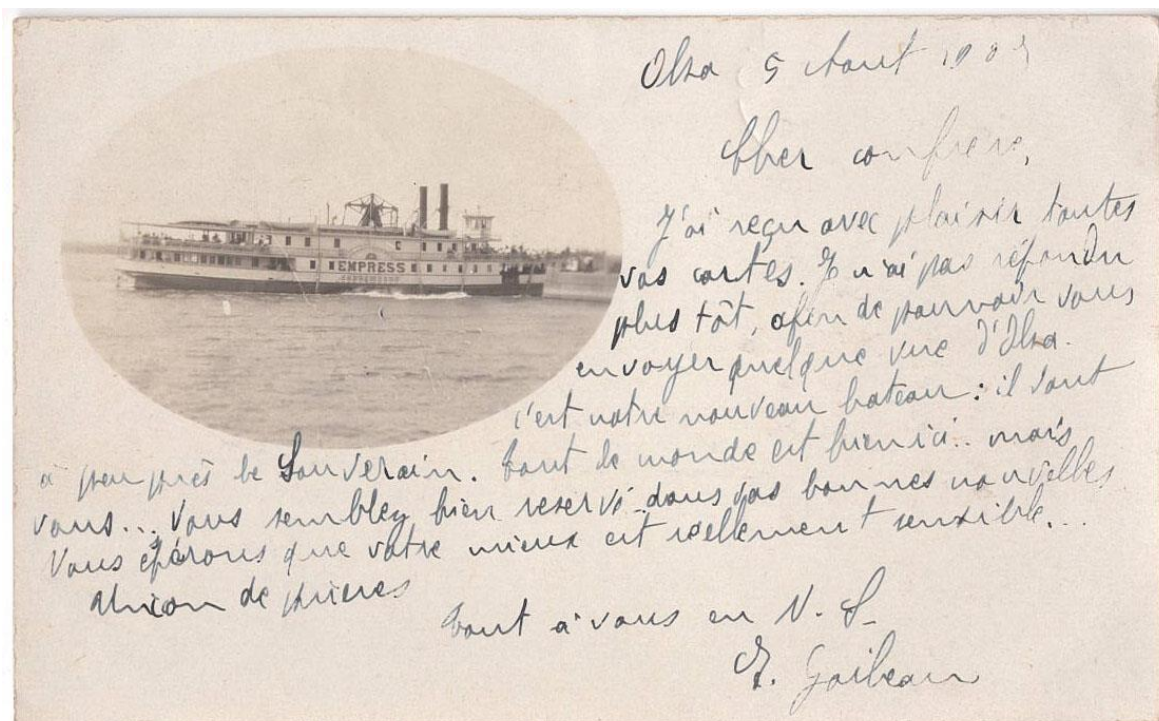 Oka 5 Aout 190
Cher confrere,
J'ai reçu avec plaisir toutes
vos cartes. Je n'ai pas répondu
plus tôt, afin de pouvoir vous
envoyer quelque vue d'Oka.
c'est notre nouveau bateau : il vaut
à peu près le Souverain. Tout le monde est bien ici.. mais
vous... Vous semblez bien reservé dans vos bonnes nouvelles
Nous espérons que votre mieux est reellement sensible...
Union de prieres
Tout à vous en N. S.
Gaibeau
EMPRESS